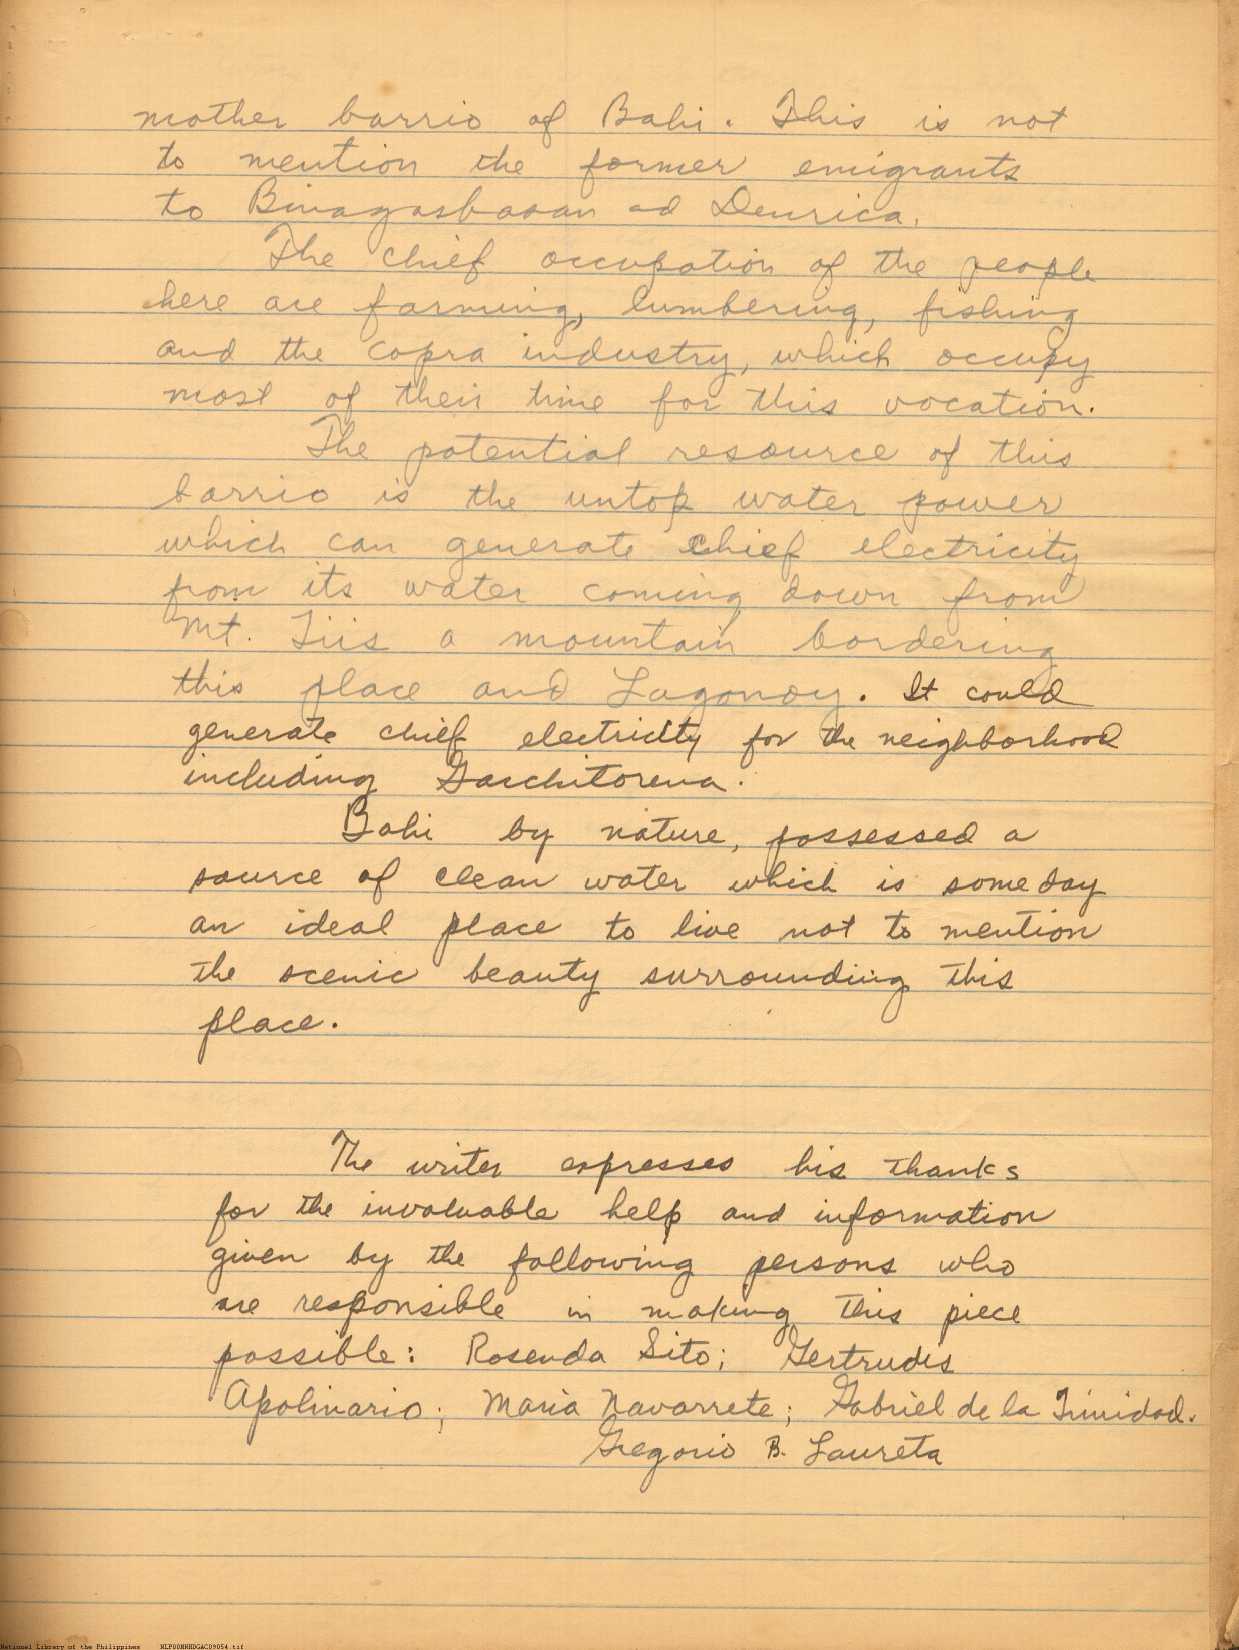 mother barrio of Bahi. This is not
to mention the former emigrants
to Binagasbasan ad Denrica.
The chief occupation of the people
here are farming, lumbering, fishing
and the copra industry, which occupy
most of their time for this vocation.
The potential resource of this
barrio is the untop water power
which can generate chief electricity
from its water coming down from
Mt. Tiis a mountain bordering
this place and Lagonoy. It could
generate chief electricity for the neighborhood
including Garchitorena.
Bahi by nature, possessed a
source of clean water which is some day
an ideal place to live not to mention
the scenic beauty surrounding this
place.
The writer expresses his thanks
for the invaluable help and information
given by the following persons who
are responsible in making this piece
possible: Rosenda Sito; Gertrudis
Apolinario; Maria Navarrete; Gabriel de la Trinidad.
Gregorio B. Laureta
National Library of the Philippines NLPOOMNHDGAC09054.tif